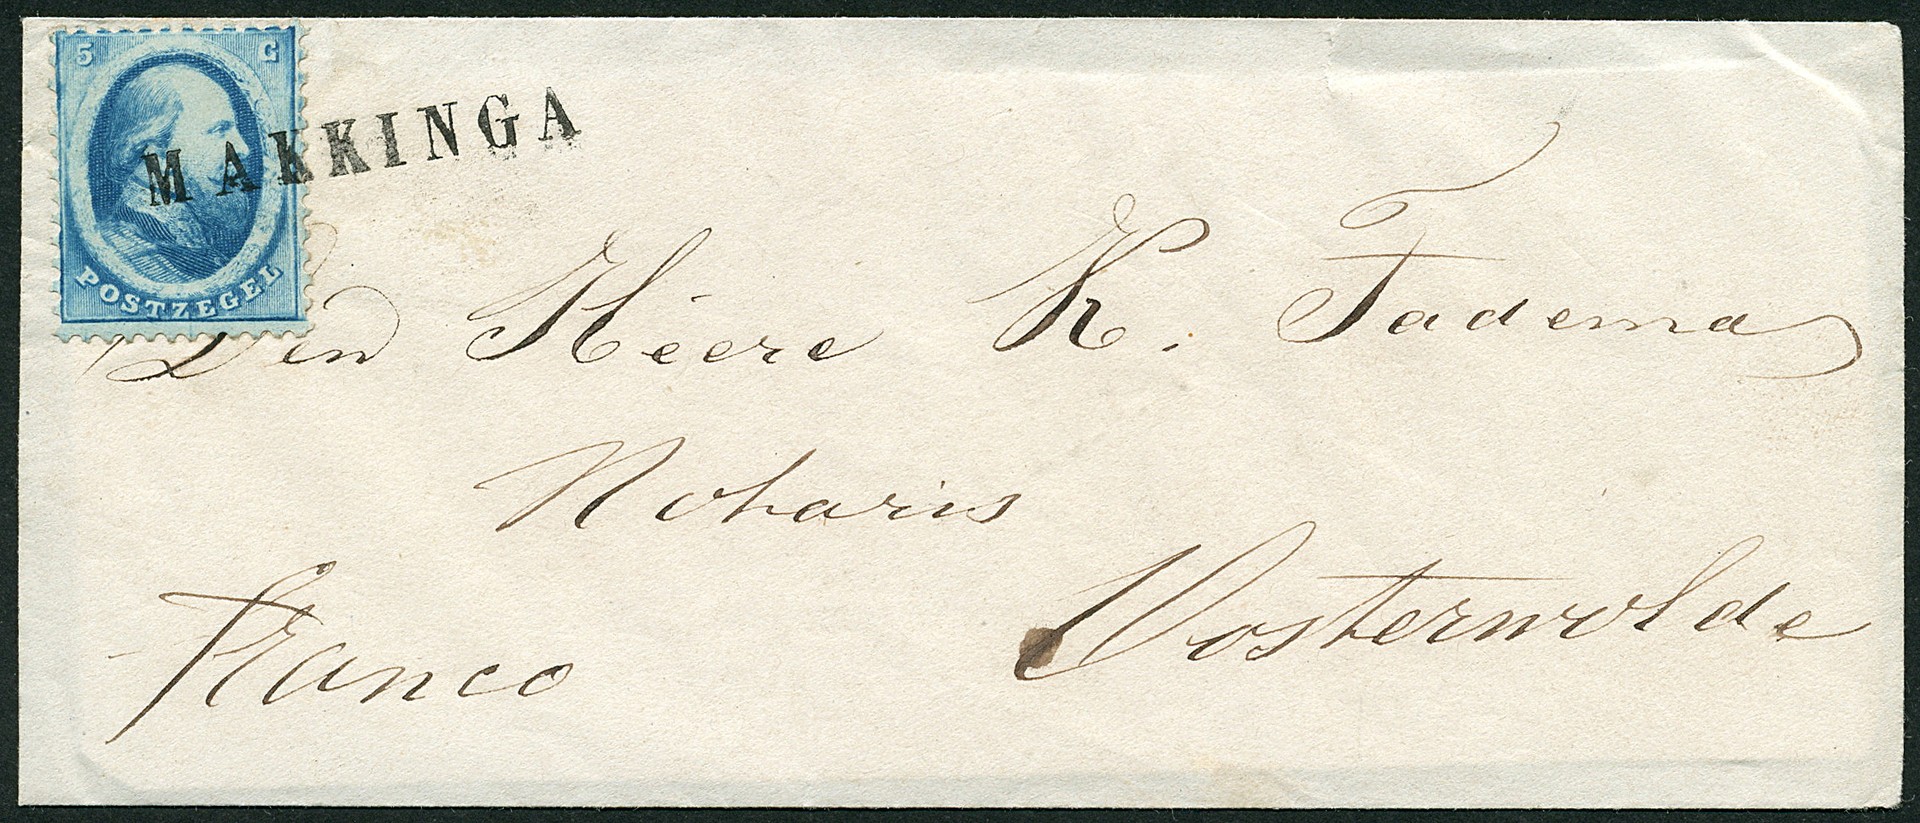 5 C
POSTZEGEL
MAKKINGA
Den Heere K. Tadema
Notaris
Oosterwolde
Franco